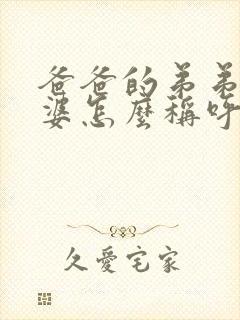 爸爸的弟弟
婆怎麼稱呼
久愛宅家